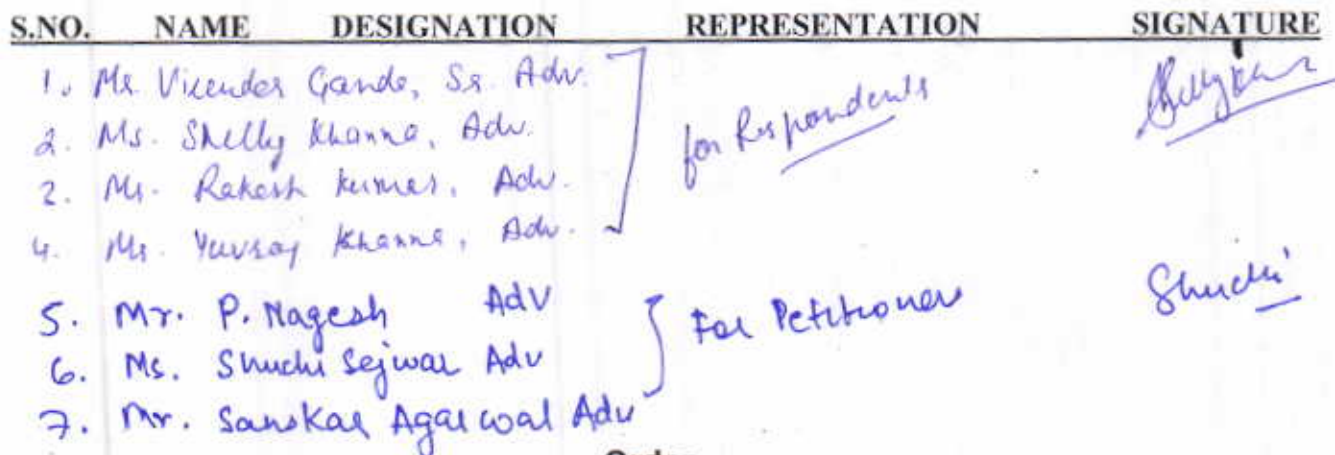 S.NO. NAME DESIGNATION REPRESENTATION SIGNATURE
1. Mr. Virender Ganda, Sr. Adv.
2. Ms. Shelly Khanna, Adv.
2. Mr. Rakesh Kumar, Adv.
4. Mr. Yuvraj Khanna, Adv.
for Respondents
5. Mr. P. Nagesh Adv
6. Ms. Shuchi Sejwar Adv
7. Mr. Sanskar Agarwal Adv
For Petitioner
Shuchi